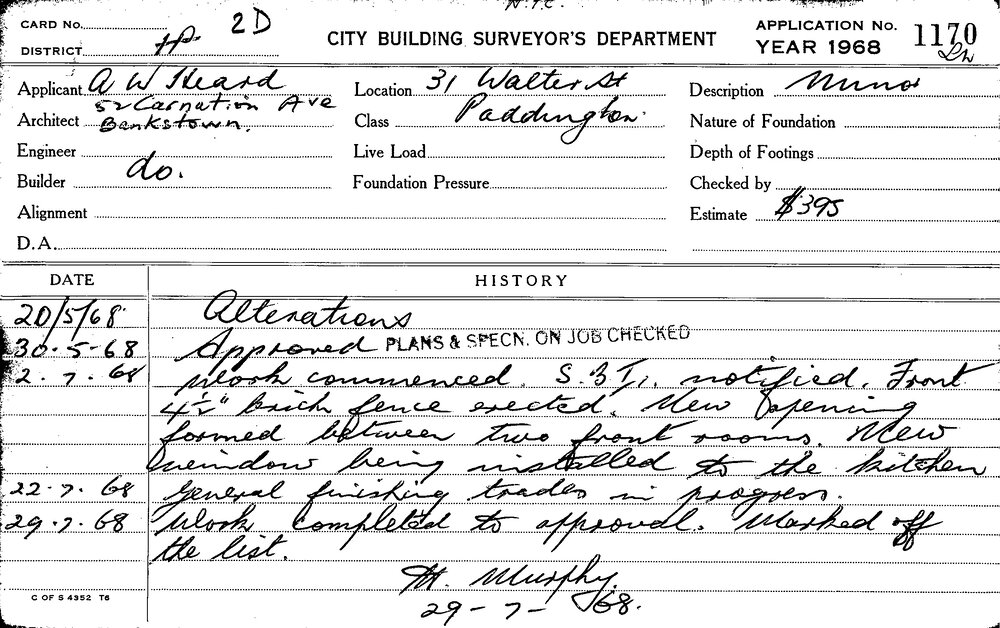 N.T.C.
CARD No. 2D
DISTRICT
CITY BUILDING SURVEYOR'S DEPARTMENT
APPLICATION No. 1170
YEAR 1968
Applicant A W Heard
52 Carnation Ave
Architect Bankstown.
Engineer
Builder do.
Alignment
D.A.
Location 31 Walter St
Class Paddington.
Live Load
Foundation Pressure
Description Minor
Nature of Foundation
Depth of Footings
Checked by
Estimate $395
DATE HISTORY
20/5/68. Alterations
30-5-68 Approved PLANS & SPECN. ON JOB CHECKED
2.7.68 Work commenced. notified. Front
4½" brick fence erected. New opening
formed between two front rooms. New
window being installed to the kitchen
22.7.68 General finishing trades in progress.
29.7.68 Work completed to approval. Marked off
the list.
Murphy.
29-7-68.
C OF S 4352 T6